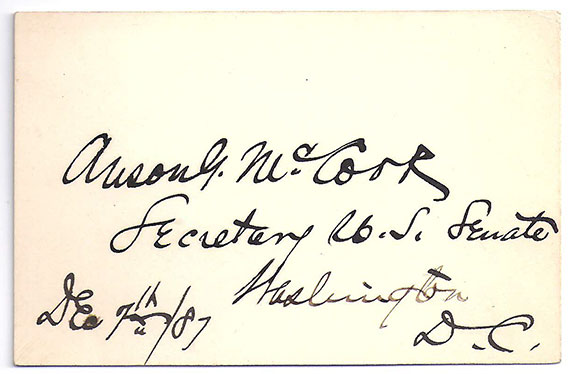 Anson G. McCook
Secretary U.S. Senate
Washington
D.C.
Dec 7th/87